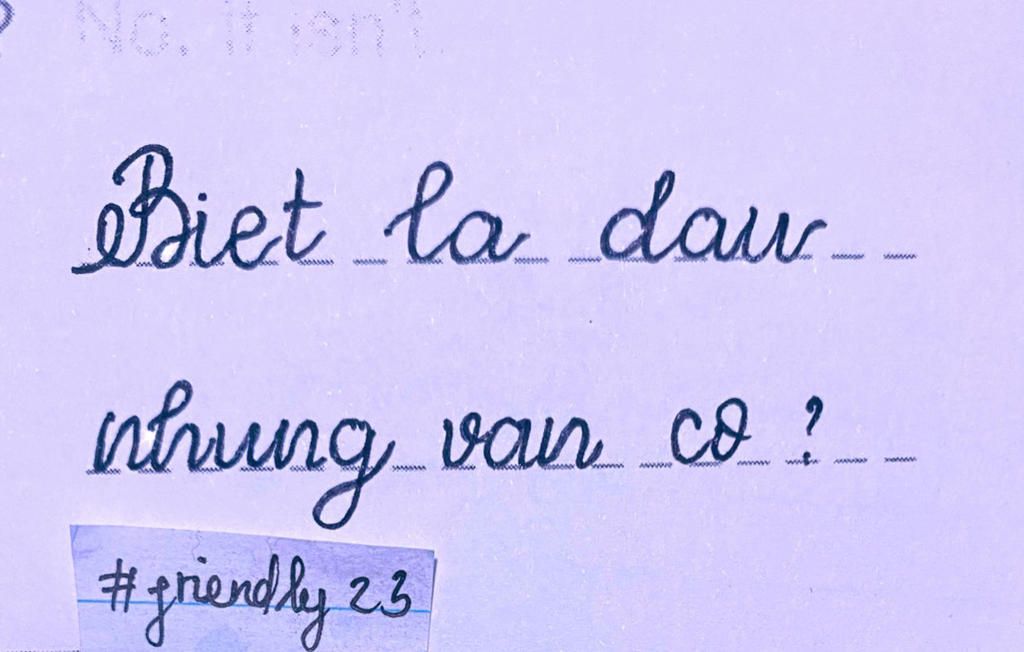 ? No, it isn't.
Biet la dau
nhung van co ?
#friendly 23